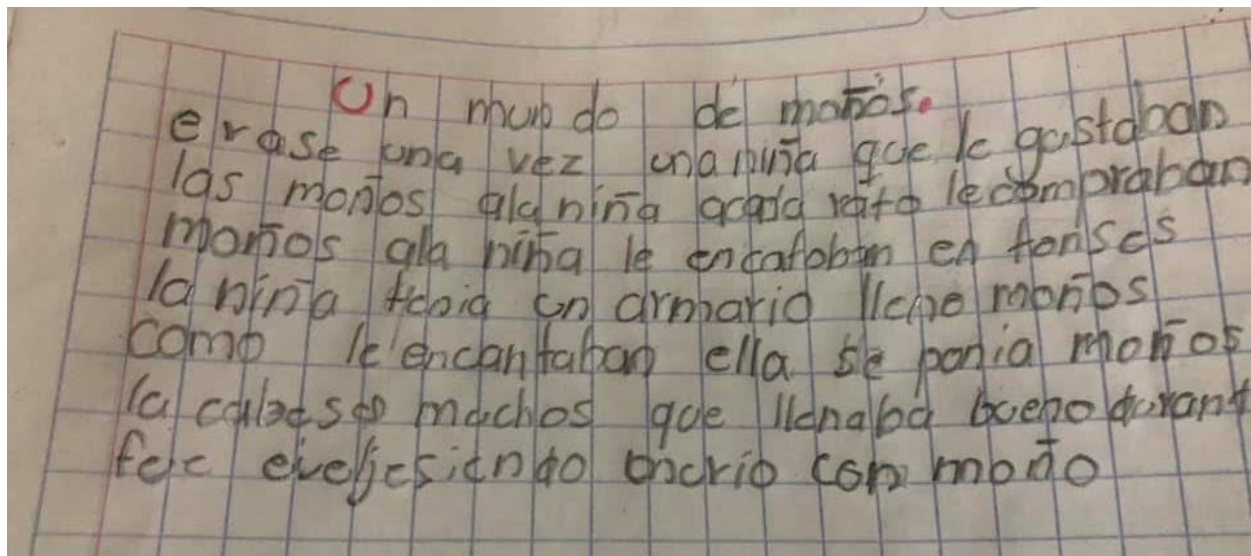 Un mundo de moños.
erase una vez una niña que le gustaban
las moños ala niña acada rato le compraban
moños ala niña le encataban en tonses
la niña tenia un armario lleno moños
como le encantaban ella se ponia moños
la cabesa muchos que llenaba bueno durant
fue evejesiendo murio con moño